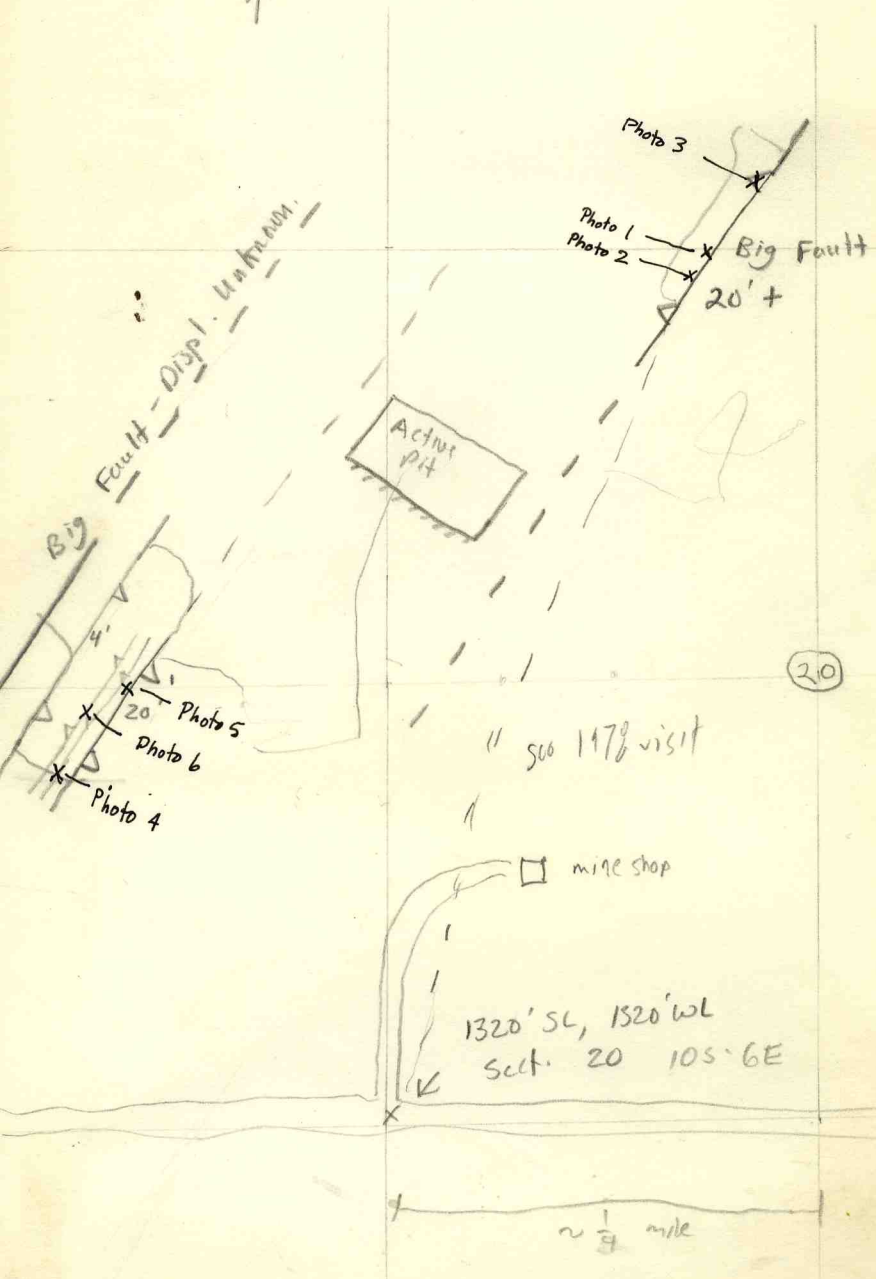 Photo 3
Photo 1
Photo 2
Big Fault
20' +
Big Fault - Displ. Unknown.
Active
Pit
4'
20'
Photo 5
Photo 6
Photo 4
20
1978 visit
mine shop
1320' SL, 1320' WL
Sect. 20 10S-6E
~ 1/4 mile